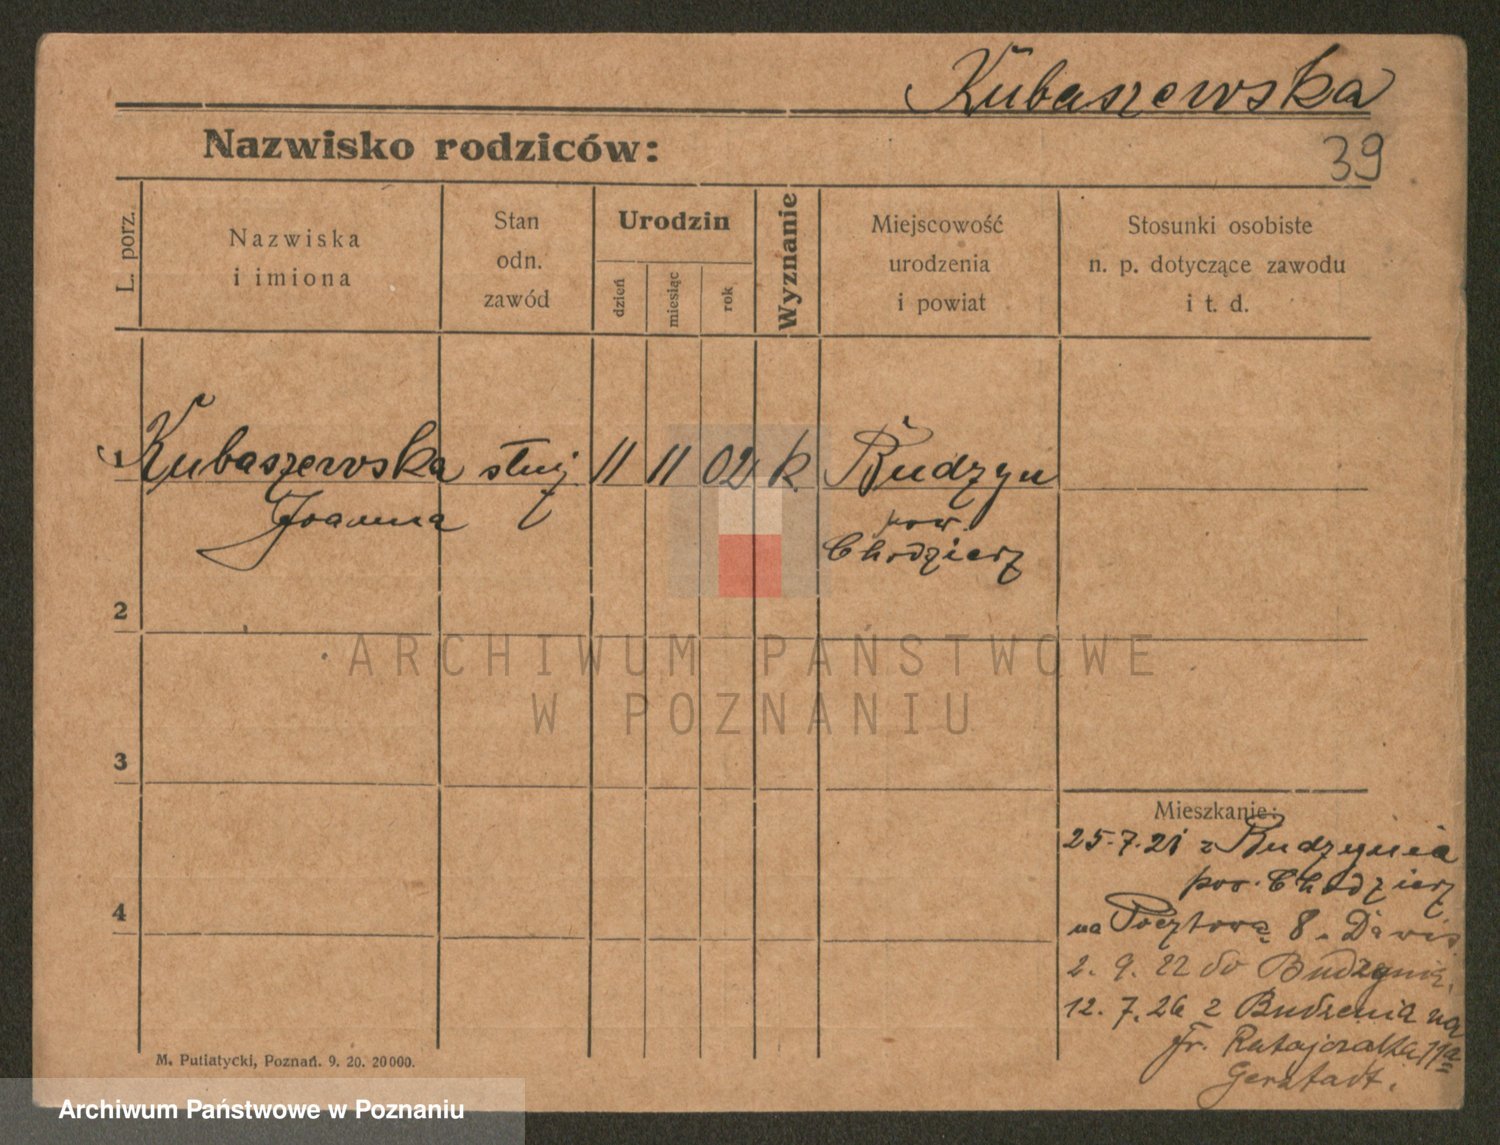 Kubaszewska
39
Nazwisko rodziców:
L. porz.
Nazwiska
i imiona
Stan
odn.
zawód
Urodzin
dzień
miesiąc
rok
Wyznanie
Miejscowość
urodzenia
i powiat
Stosunki osobiste
n. p. dotyczące zawodu
i t. d.
1 Kubaszewska służ 11 11 02 k. Budzyn
Joanna
pow.
Chodzież
2
3
4
Mieszkanie:
25.7.21 z Budzynia
pow. Chodzież
na Pocztową 8
2. 9. 22 do Budzynia.
12. 7. 26 z Budzenia na
Fr. Ratajczaka 11a
Gerstadt.
M. Putiatycki, Poznań. 9. 20. 20000.
ARCHIWUM PAŃSTWOWE
W POZNANIU
Archiwum Państwowe w Poznaniu